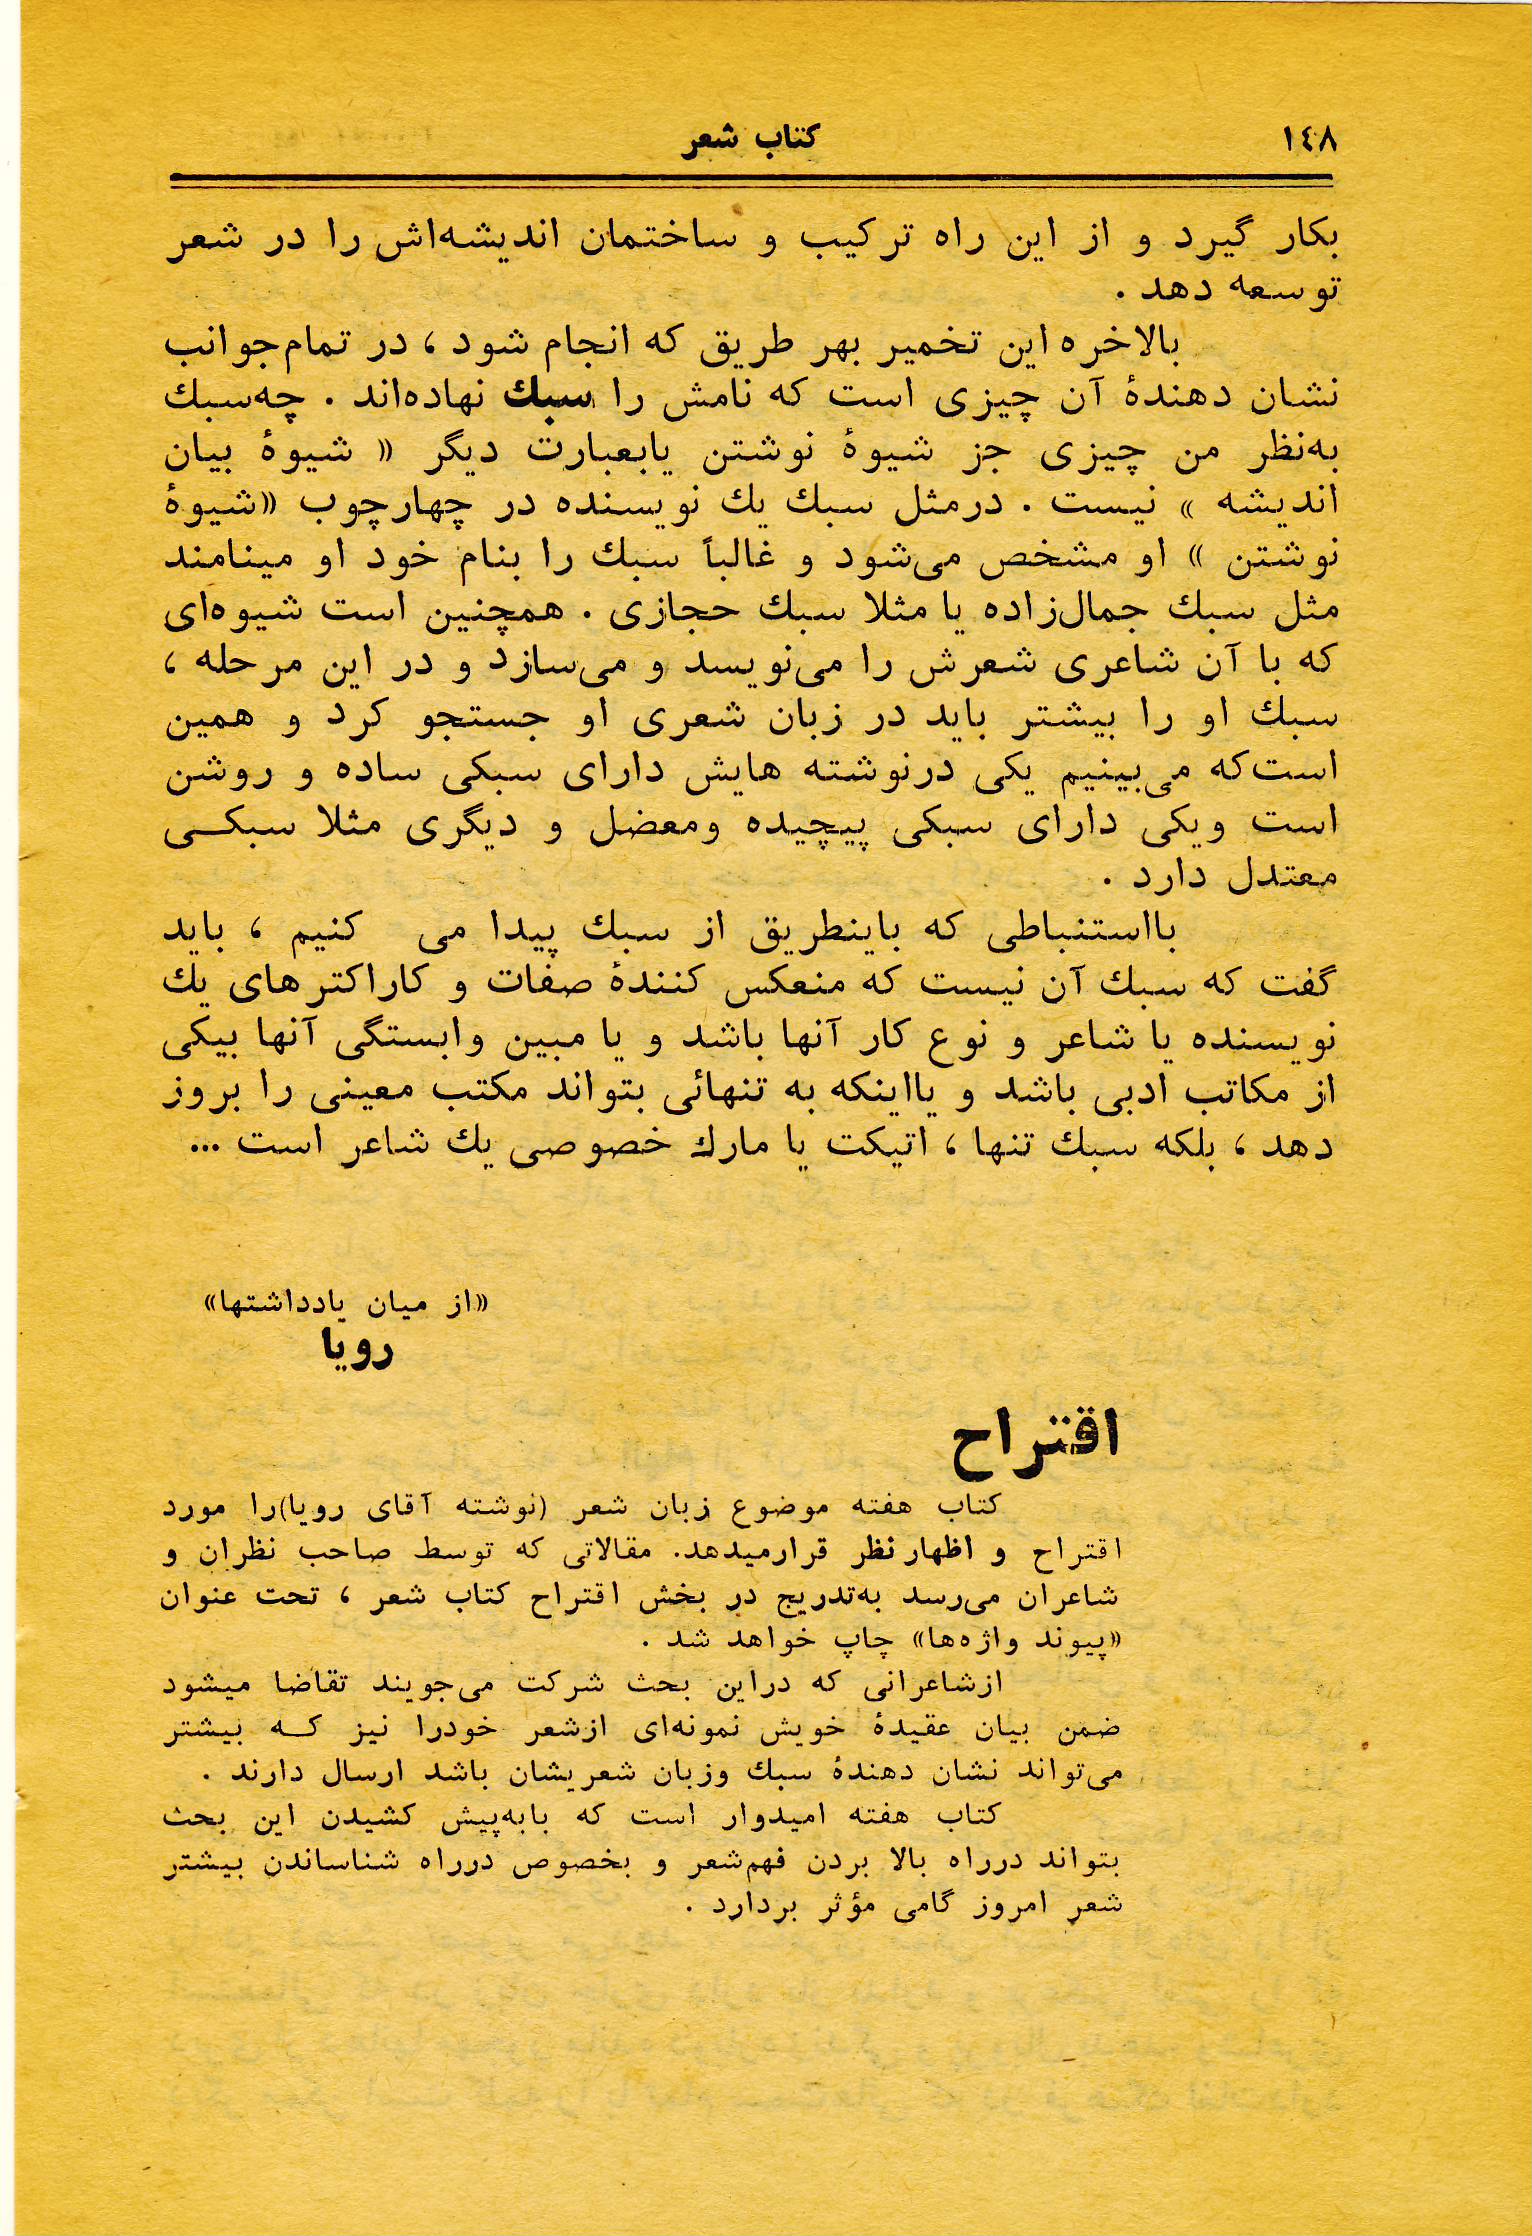 ۱٤۸
کتاب شعر
بکار گیرد و از این راه ترکیب و ساختمان اندیشه‌اش را در شعر
توسعه دهد .
بالاخره این تخمیر بهر طریق که انجام شود ، در تمام‌جوانب
نشان دهندهٔ آن چیزی است که نامش را سبك نهاده‌اند . چه‌سبك
به‌نظر من چیزی جز شیوهٔ نوشتن یابعبارت دیگر « شیوهٔ بیان
اندیشه » نیست . درمثل سبك یك نویسنده در چهارچوب «شیوهٔ
نوشتن » او مشخص می‌شود و غالباً سبك را بنام خود او مینامند
مثل سبك جمال‌زاده یا مثلا سبك حجازی . همچنین است شیوه‌ای
که با آن شاعری شعرش را می‌نویسد و می‌سازد و در این مرحله ،
سبك او را بیشتر باید در زبان شعری او جستجو کرد و همین
است‌که می‌بینیم یکی درنوشته هایش دارای سبکی ساده و روشن
است ویکی دارای سبکی پیچیده ومعضل و دیگری مثلا سبکــی
معتدل دارد .
بااستنباطی که باینطریق از سبك پیدا می کنیم ، باید
گفت که سبك آن نیست که منعکس کنندهٔ صفات و کاراکترهای یك
نویسنده یا شاعر و نوع کار آنها باشد و یا مبین وابستگی آنها بیکی
از مکاتب ادبی باشد و یااینکه به تنهائی بتواند مکتب معینی را بروز
دهد ، بلکه سبك تنها ، اتیکت یا مارك خصوصی یك شاعر است ...
«از میان یادداشتها»
رویا
اقتراح
کتاب هفته موضوع زبان شعر (نوشته آقای رویا)را مورد
اقتراح و اظهارنظر قرارمیدهد. مقالاتی که توسط صاحب نظران و
شاعران می‌رسد به‌تدریج در بخش اقتراح کتاب شعر ، تحت عنوان
«پیوند واژه‌ها» چاپ خواهد شد .
ازشاعرانی که دراین بحث شرکت می‌جویند تقاضا میشود
ضمن بیان عقیدهٔ خویش نمونه‌ای ازشعر خودرا نیز کــه بیشتر
می‌تواند نشان دهندهٔ سبك وزبان شعریشان باشد ارسال دارند .
کتاب هفته امیدوار است که بابه‌پیش کشیدن این بحث
بتواند درراه بالا بردن فهم‌شعر و بخصوص درراه شناساندن بیشتر
شعر امروز گامی مؤثر بردارد .